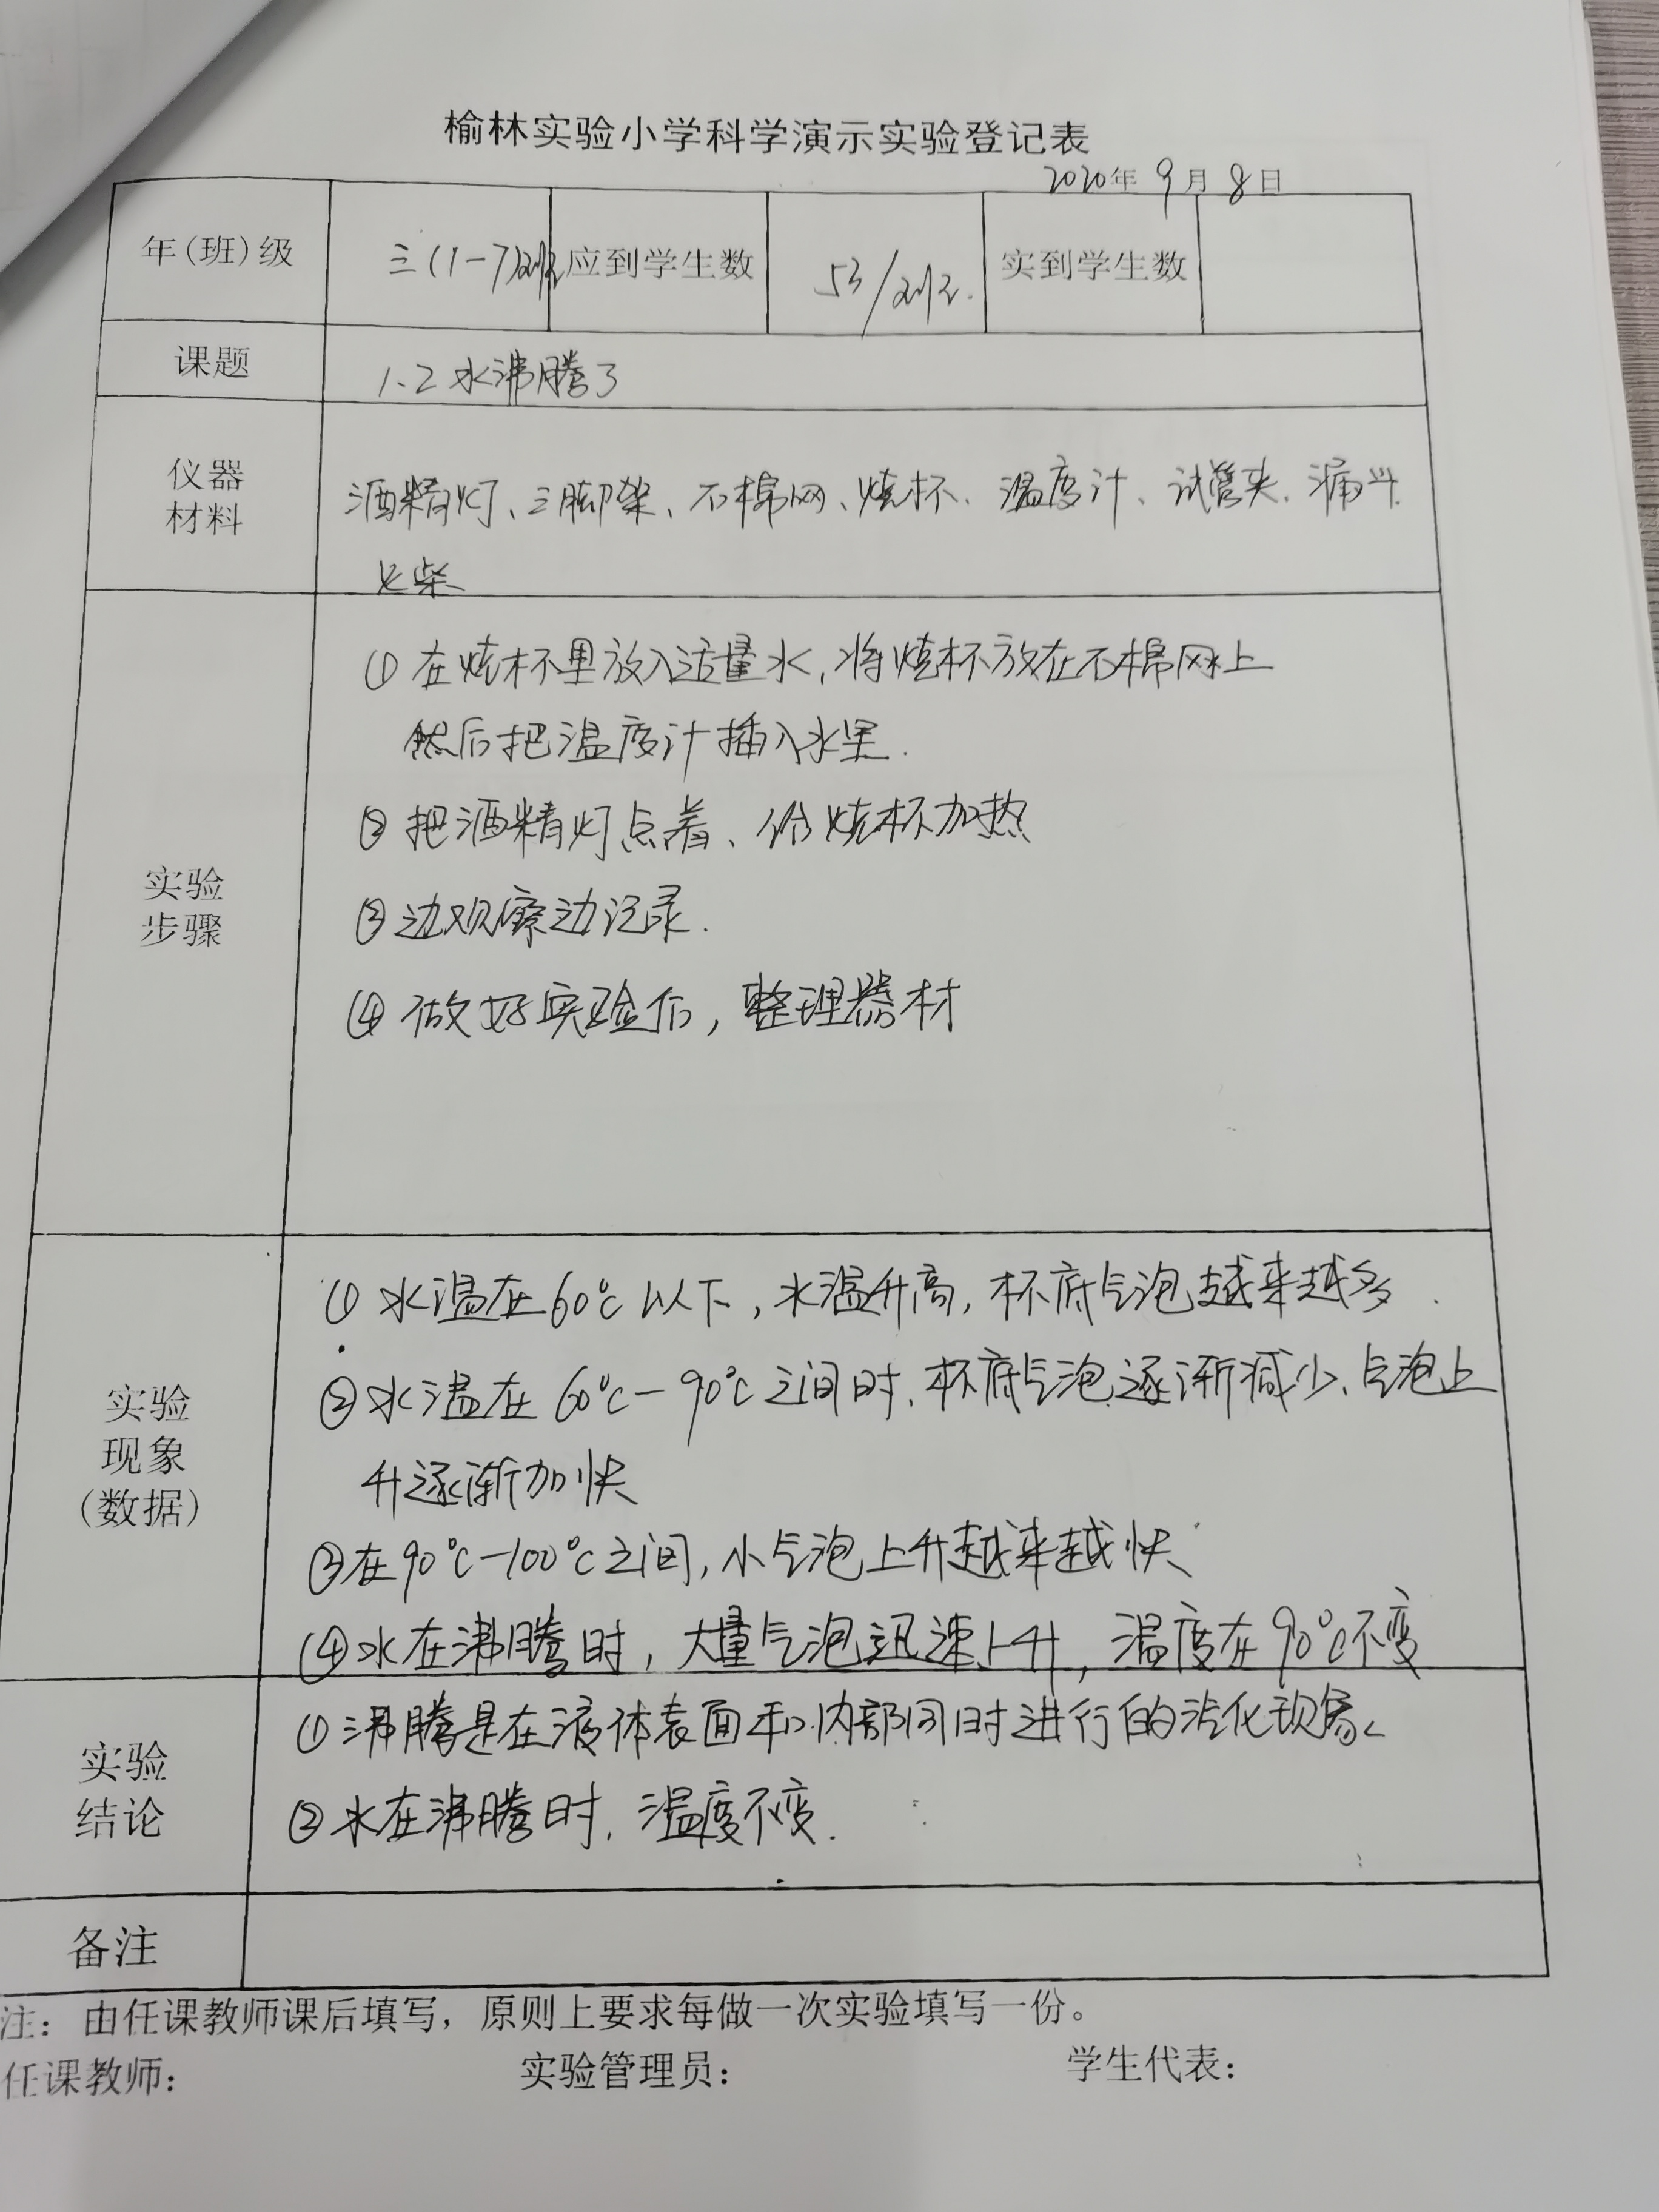 榆林实验小学科学演示实验登记表
2020年 9月 8日
年(班)级 三(1-7)班 应到学生数 53/班. 实到学生数
课题 1.2 水沸腾了
仪器
材料
酒精灯、三脚架、石棉网、烧杯、温度计、试管夹、漏斗
火柴
实验
步骤
①在烧杯里放入适量水,将烧杯放在石棉网上
然后把温度计插入水里.
②把酒精灯点着、给烧杯加热
③边观察边记录.
④做好实验后,整理器材
实验
现象
(数据)
①水温在60℃以下,水温升高,杯底气泡越来越多.
②水温在60℃-90℃之间时,杯底气泡逐渐减少、气泡上
升逐渐加快
③在90℃-100℃之间,小气泡上升越来越快
④水在沸腾时,大量气泡迅速上升,温度在90℃不变
实验
结论
①沸腾是在液体表面和内部同时进行的汽化现象。
②水在沸腾时,温度不变.
备注
注:由任课教师课后填写,原则上要求每做一次实验填写一份。
任课教师: 实验管理员: 学生代表: